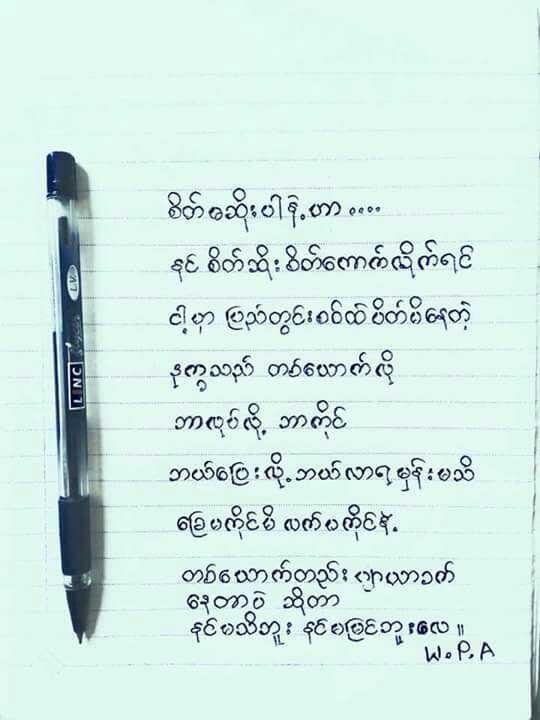 စိတ်မဆိုးပါနဲ့ဟာ ....
နင် စိတ်ဆိုး စိတ်ကောက်လိုက်ရင်
ငါ့မှာ ပြည်တွင်းစစ်ထဲ ပိတ်မိနေတဲ့
ဒုက္ခသည် တစ်ယောက်လို
ဘာလုပ်လို့ ဘာကိုင်
ဘယ်ပြေးလို့ ဘယ်လာရမှန်းမသိ
ခြေမကိုင်မိ လက်မကိုင်နဲ့
တစ်ယောက်တည်း ဗျာယာခတ်
နေတာပဲ ဆိုတာ
နင်မသိဘူး နင်မမြင်ဘူးလေ ။
W.P.A
LINC